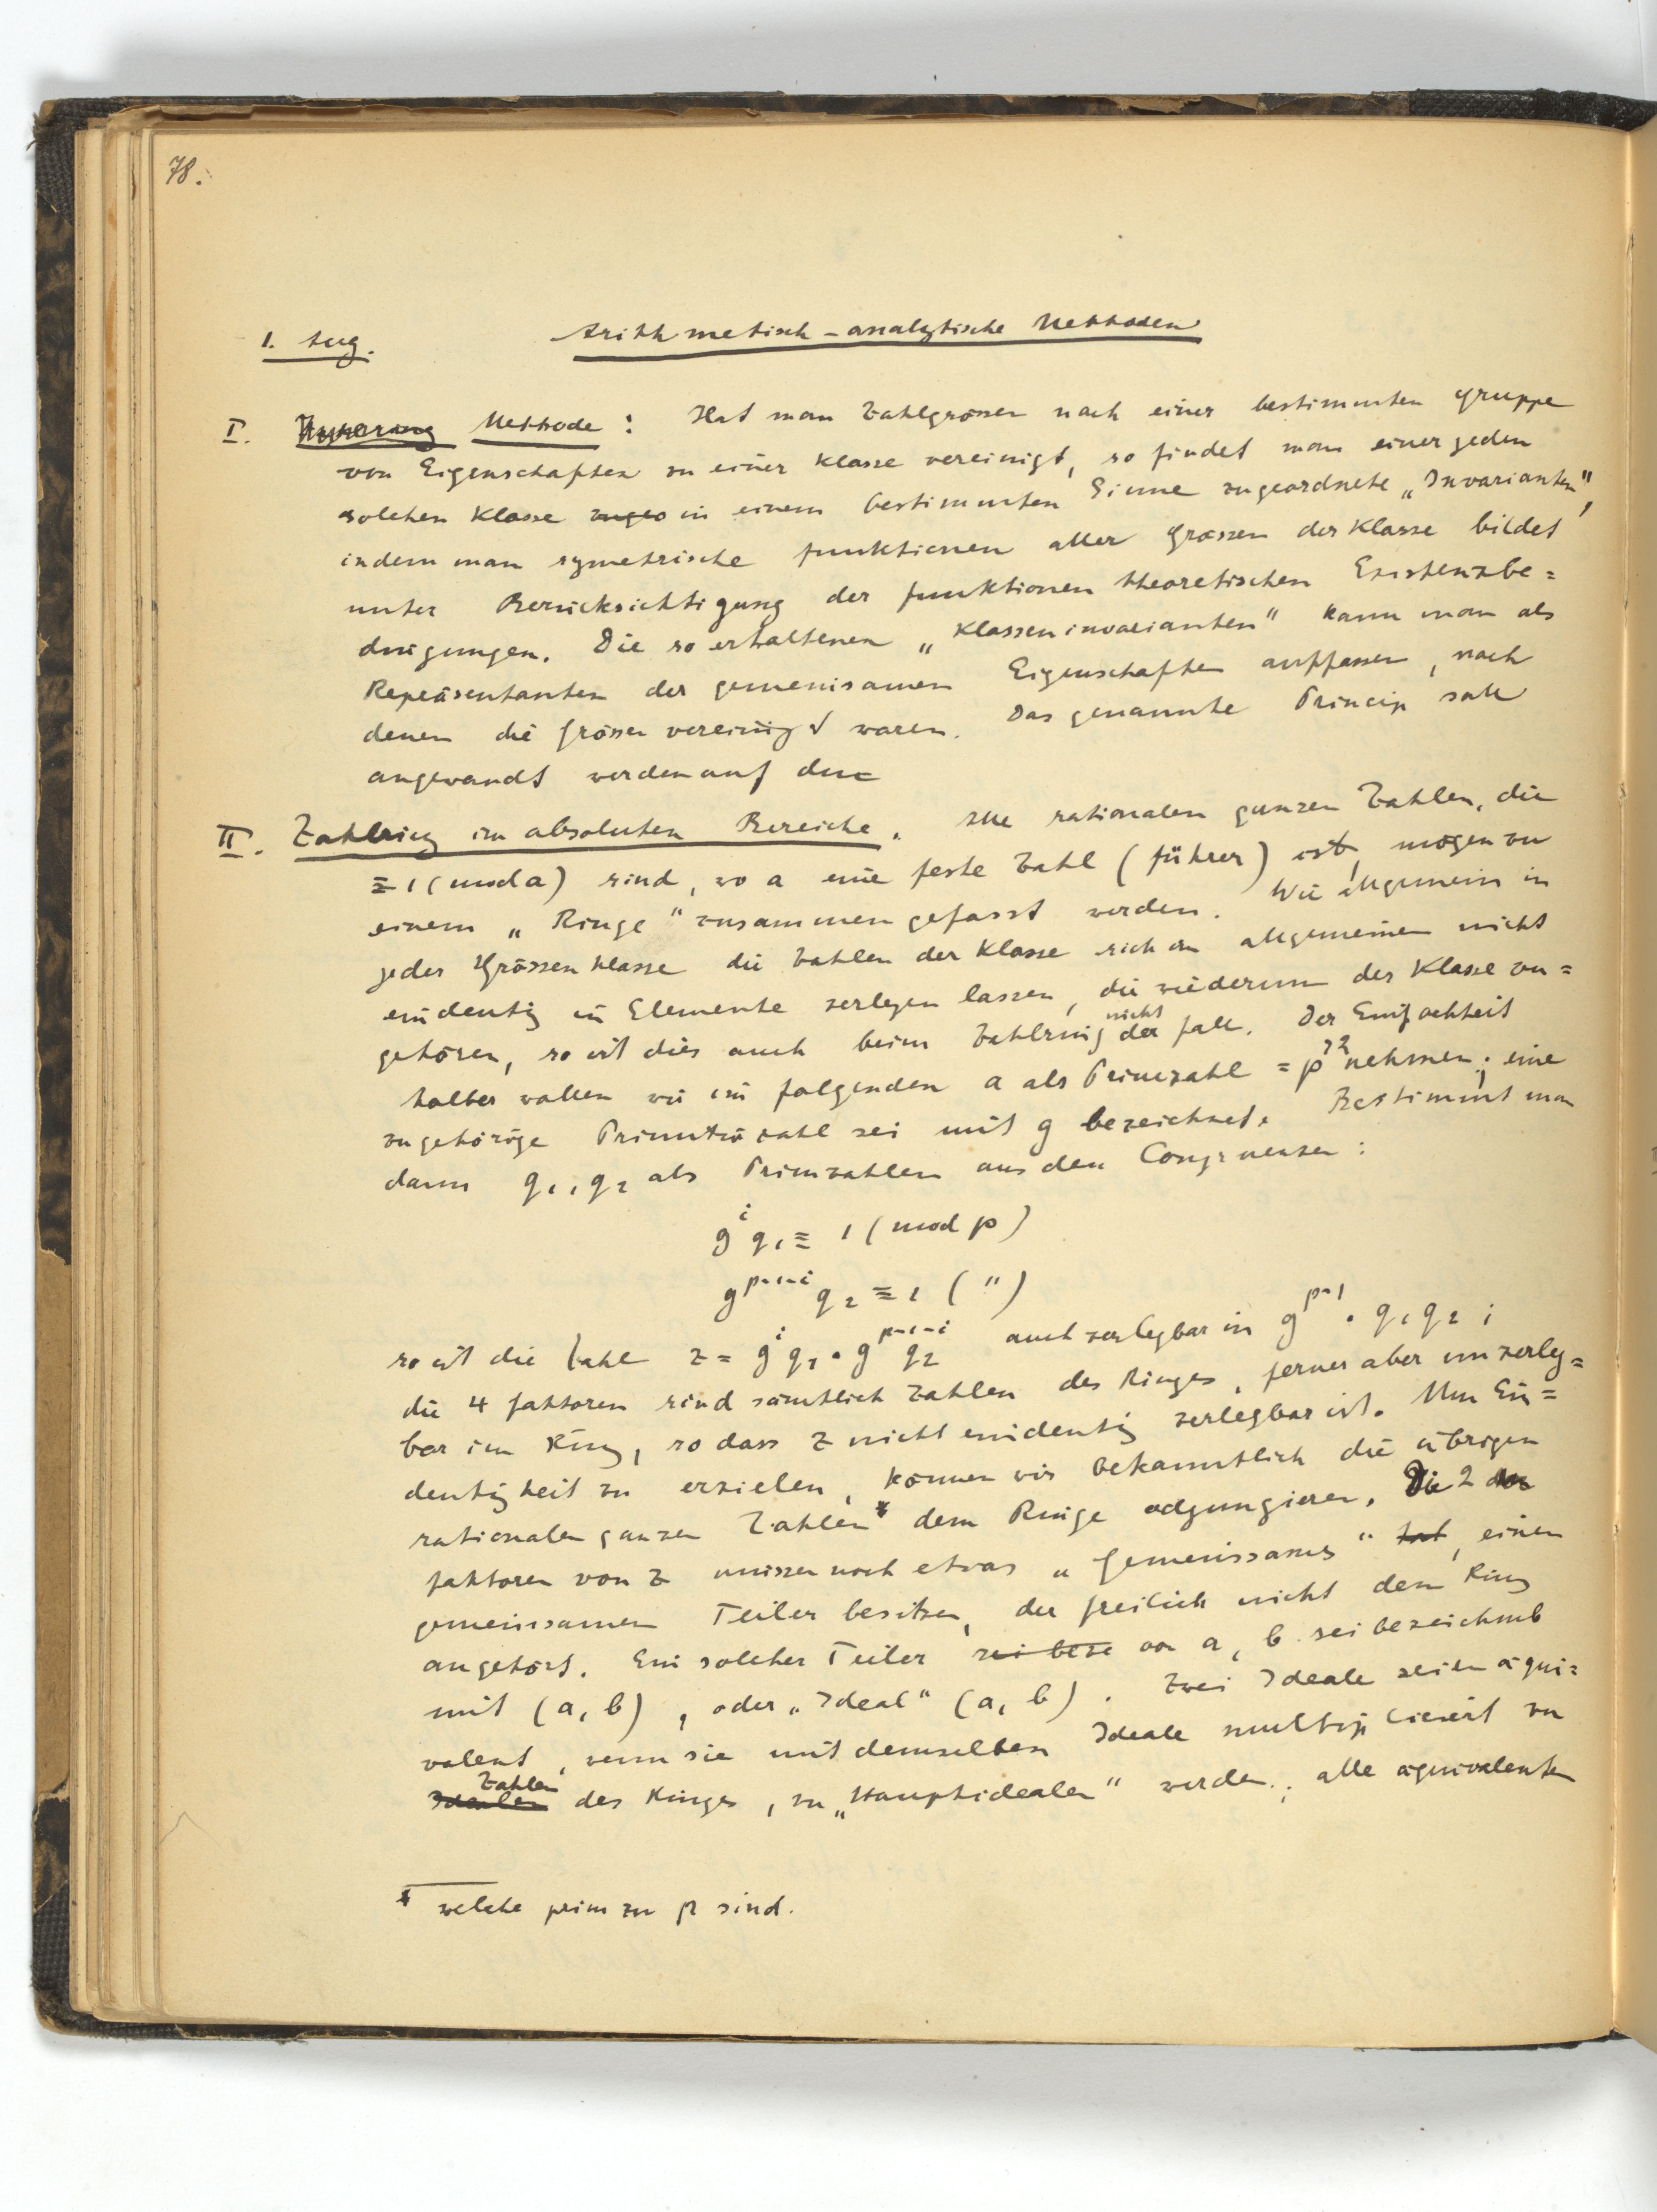 78.
1. Aug. Arithmetisch-analytische Methoden
I. Methode: Hat man Zahlgrössen nach einer bestimmten Gruppe
von Eigenschaften zu einer Klasse vereinigt, so findet man einer jeden
solchen Klasse zugeo in einem bestimmten Sinne zugeordnete „Invarianten",
indem man symetrische Funktionen aller Grössen der Klasse bildet
unter Berücksichtigung der funktionentheoretischen Existenzbe=
dingungen. Die so erhaltenen „Klasseninvarianten" kann man als
Repräsentanten der gemeinsamen Eigenschaften auffassen, nach
denen die Grössen vereinigt waren. Das genannte Princip soll
angewandt werden auf den
II. Zahlring im absoluten Bereiche. Alle rationalen ganzen Zahlen, die
≡ 1 (mod a) sind, wo a eine feste Zahl (Führer) ist, mögen zu
einem „Ringe" zusammengefasst werden. Wie allgemein in
jeder Grössenklasse die Zahlen der Klasse sich im allgemeinen nicht
eindeutig in Elemente zerlegen lassen, die wiederum der Klasse zu=
gehören, so ist dies auch beim Zahlring nicht der Fall. Der Einfachheit
halber wollen wir im folgenden a als Primzahl = p nehmen; eine
zugehörige Primitivzahl sei mit g bezeichnet. Bestimmt man
dann q₁, q₂ als Primzahlen aus den Congruenzen:
gⁱ q₁ ≡ 1 (mod p)
g^{p-1-i} q₂ ≡ 1 (")
so ist die Zahl z = gⁱ q₁ · g^{p-1-i} q₂ auch zerlegbar in g^{p-1} · q₁ q₂;
die 4 Faktoren sind sämtlich Zahlen des Ringes, ferner aber unzerleg=
bar im Ring, so dass z nicht eindeutig zerlegbar ist. Um Ein=
deutigkeit zu erzielen, können wir bekanntlich die übrigen
rationalen ganzen Zahlen* dem Ringe adjungieren. Die 2
Faktoren von z müssen noch etwas „Gemeinsames" hat, einen
gemeinsamen Teiler besitzen, der freilich nicht dem Ring
angehört. Ein solcher Teiler sei beze von a, b sei bezeichnet
mit (a, b), oder „Ideal" (a, b). Zwei Ideale seien äqui=
valent, wenn sie mit demselben Ideale multipliciert zu
Idealen Zahlen des Ringes, zu „Hauptidealen" werden; alle äquivalenten
* welche prim zu p sind.